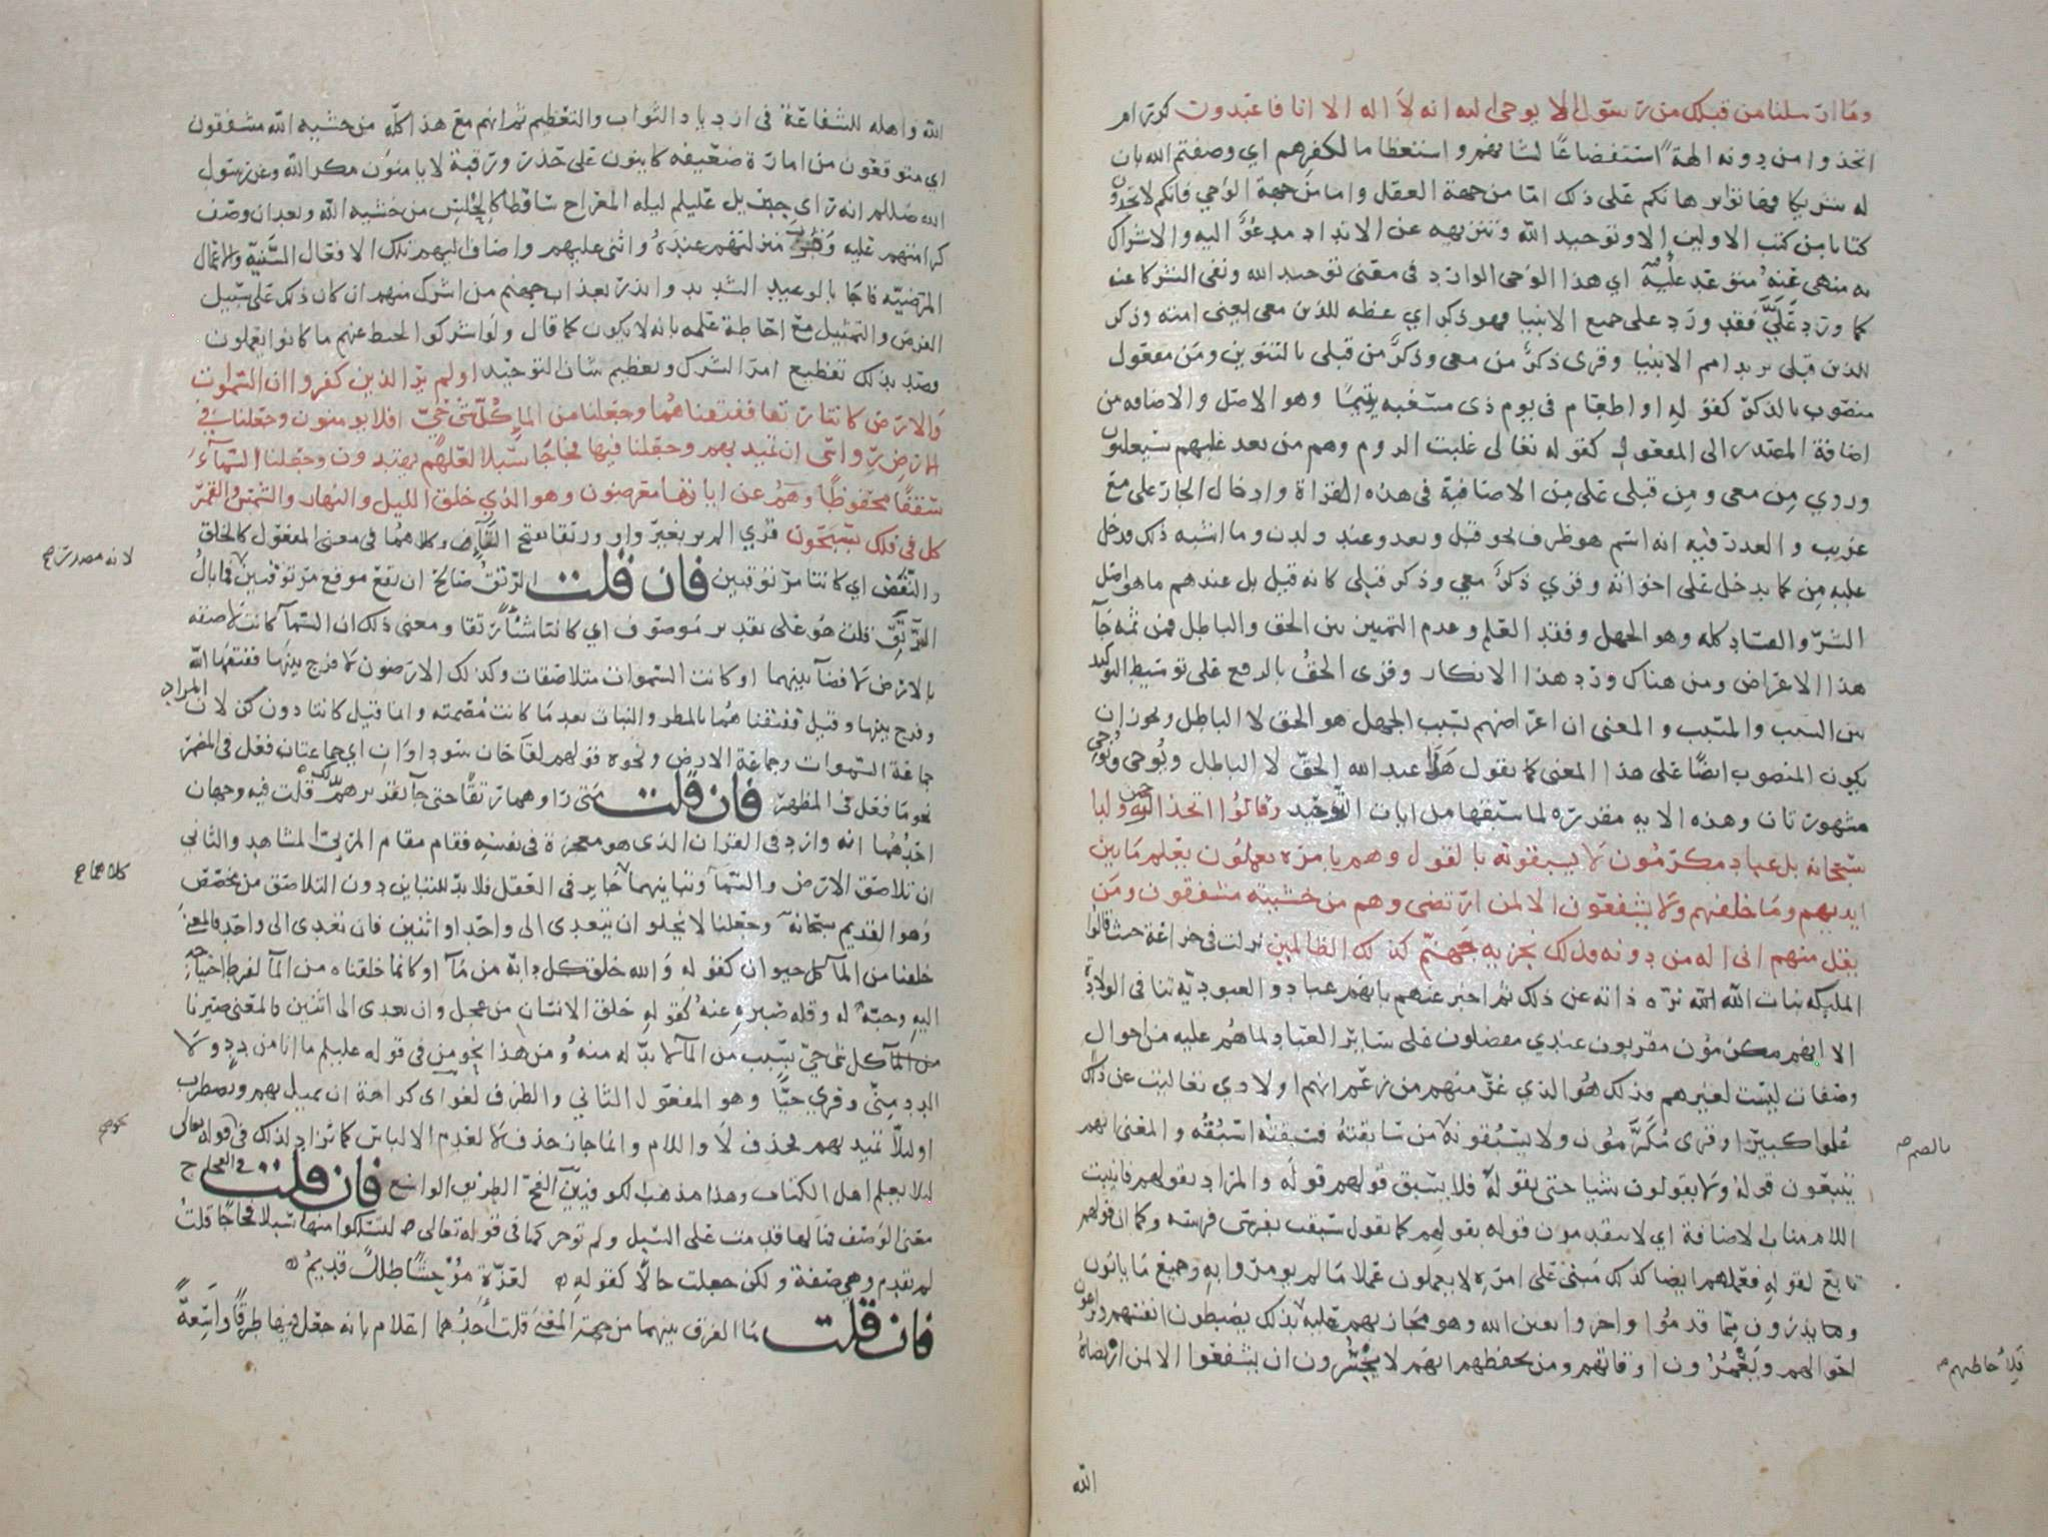 وما ارسلنا من قبلك من رسول الا يوحى اليه انه لا اله الا انا فاعبدون كرر ام
اتخذوا من دونه الهة استفضاعا لشانهم واستعظاما لكفرهم اي وصفتم الله بان
له شريكا فهاتوا برهانكم على ذلك اما من جهة العقل واما من جهة الوحي فانكم لا تجدون
كتابا من كتب الاولين الا وتوحيد الله وتنزيهه عن الانداد مدعو اليه والاشراك
به منهى عنه متوعد عليه اي هذا الوحى الوارد في معنى توحيد الله ونفى الشركا عنه
كما ورد علي فقد ورد على جميع الانبيا فهو ذكر اي عظه للذين معى يعنى امته وذكر
للذين قبلى يريد امم الانبيا وقرى ذكر من معى وذكر من قبلى بالتنوين ومن مفعول
منصوب بالذكر كقوله او اطعام في يوم ذى مسغبه يتيما وهو الاصل والاضافه من
اضافة المصدر الى المفعول كقوله تعالى غلبت الروم وهم من بعد غلبهم سيغلبون
وروي من معى ومن قبلى على من الاضافية في هذه القراة وادخال الجار على مع
غريب والعذر فيه انه اسم هو ظرف نحو قبل وبعد وعند ولدن وما اشبه ذلك فدخل
عليه من كما يدخل على اخواته وقري ذكر معي وذكر قبلى كانه قيل بل عندهم ما هو اصل
الشر والفساد كله وهو الجهل وفقد العلم وعدم التمييز بين الحق والباطل فمن ثمه جا
هذا الاعراض ومن هناك ورد هذا الانكار وقرى الحق بالرفع على توسيط التوكيد
بين السبب والمسبب والمعنى ان اعراضهم بسبب الجهل هو الحق لا الباطل ويجوز ان
يكون المنصوب ايضا على هذا المعنى كما يقول هذا عبد الله الحق لا الباطل ويوحى ونوحي
مشهورتان وهذه الايه مقدرة لما سبقها من ايات التوحيد وقالوا اتخذ الرحمن ولدا
سبحانه بل عباد مكرمون لا يسبقونه بالقول وهم بامره يعملون يعلم ما بين
ايديهم وما خلفهم ولا يشفعون الا لمن ارتضى وهم من خشيته مشفقون ومن
يقل منهم انى اله من دونه فذلك نجزيه جهنم كذلك الظالمين نزلت في خزاعة حيث قالوا
المليكه بنات الله الله نزه ذاته عن ذلك ثم اخبر عنهم بانهم عباد والعبوديه تنافى الولادة
الا انهم مكرمون مقربون عندي مفضلون على ساير العباد لما هم عليه من احوال
وصفات ليست لغيرهم فذلك هو الذي غر منهم من زعم انهم اولادي تعاليت عن ذلك
علوا كبيرا وقرى مكرمون ولا يسبقونه من سابقته فسبقته اسبقه والمعنى انهم
بالضم صح
يتبعون قوله ولا يقولون شيا حتى يقوله فلا يسبق قولهم قوله والمراد بقولهم فانيب
اللام مناب الاضافة اي لا يتقدمون قوله بقولهم كما يقول سبقت بفرسى فرسه وكما ان قولهم
تابع لقوله فعملهم ايضا كذلك مبنى على امره لا يعملون عملا ما لم يومروا به وجميع ما ياتون
وما يذرون مما قدموا واخروا بعين الله وهو مجازيهم عليه بذلك يضبطون انفسهم ويراعون
احوالهم ويعمرون اوقاتهم ومن بحفظهم انهم لا يجسرون ان يشفعوا الا لمن ارتضاه
فلاحاطتهم صح
الله
الله واهله للشفاعة في ازدياد الثواب والتعظيم ثم انهم مع هذا كله من خشيه الله مشفقون
اي متوقعون من امارة ضعيفه كاينون على حذر ورقبة لا يامنون مكر الله وعن رسول
الله صللم انه راى جبريل عليلم ليله المعراج ساقطا كالحلس من خشيه الله وبعد ان وصف
كرامتهم عليه وقرب منزلتهم عنده واثنى عليهم واضاف اليهم تلك الافعال السنية والاعمال
المرضيه فاجا بالوعيد الشديد وانذر بعذاب جهنم من اشرك منهم ان كان ذلك على سبيل
الفرض والتمثيل مع احاطة علمه بانه لا يكون كما قال ولو اشركوا لحبط عنهم ما كانوا يعملون
وصد بذلك تفظيع امر الشرك وتعظيم شان التوحيد اولم ير الذين كفروا ان السموات
والارض كانتا رتقا ففتقناهما وجعلنا من الما كل شى حي افلا يومنون وجعلنا في
الارض رواسى ان تميد بهم وجعلنا فيها فجاجا سبلا لعلهم يهتدون وجعلنا السماء
سقفا محفوظا وهم عن اياتها معرضون وهو الذي خلق الليل والنهار والشمس والقمر
كل في فلك يسبحون قري الم ير بغير واو ورتقا بفتح التا وكلاهما في معنى المفعول كالخلق
لانه مصدر صح
والنقض اي كانتا مرتوقتين فان قلت الرتق صالح ان يقع موقع مرتوقتين فما بال
الرتق قلت هو على تقدير موصوف اي كانتا شئا رتقا ومعنى ذلك ان السما كانت لاصقه
بالارض لا فضا بينهما او كانت السموات متلاصقات وكذلك الارضون لا فرج بينها ففتقها الله
وفرج بينها وقيل ففتقناهما بالمطر والنبات بعد ما كانت مصمته وانما قيل كانتا دون كن لان المراد
جماعة السموات وجماعة الارض ونحوه قولهم لقاحان سوداوان اي جماعتان فعل في المضمر
نحو ما فعل في المظهر فان قلت متى راوهما رتقا حتى جا تقديرهم بذلك قلت فيه وجهان
احدهما انه وارد في القران الذى هو معجزة في نفسه فقام مقام المرئى المشاهد والثاني
ان تلاصق الارض والسما وتباينهما جايز في العقل فلا بد للتباين دون التلاصق من مخصص
كلاهما صح
وهو القديم سبحانه وجعلنا لا يخلو ان يتعدى الى واحد او اثنين فان تعدى الى واحد فالمعنى
خلقنا من الما كل حيوان كقوله والله خلق كل دابة من ما او كانما خلقناه من الما لفرط احتياجه
اليه وحبه له وقله صبره عنه كقوله خلق الانسان من عجل وان تعدى الى اثنين فالمعنى صيرنا
كل شى حي بسبب من الما لا بد له منه ومن هذا نحو من في قوله عليلم ما انا من دد ولا
الدد مني وقري حيا وهو المفعول الثاني والظرف لغو اى كراهة ان تميل بهم وتضطرب
نحو صح
اوليلا تميد بهم بحذف لا واللام وانما جاز حذف لا لعدم الالباس كما تزاد لذلك في قوله تعالى
ليلا يعلم اهل الكتاب وهذا مذهب الكوفيين الفج الطريق الواسع فان قلت في الفجاج
معنى الوصف فما لها قدمت على السبل ولم توخر كما في قوله تعالى لتسلكوا منها سبلا فجاجا قلت
لم تقدم وهي صفة ولكن جعلت حالا كقوله لعزة موحشا طلل قديم
فان قلت ما الفرق بينهما من جهة المعنى قلت احدهما اعلام بانه جعل فيها طرقا واسعة